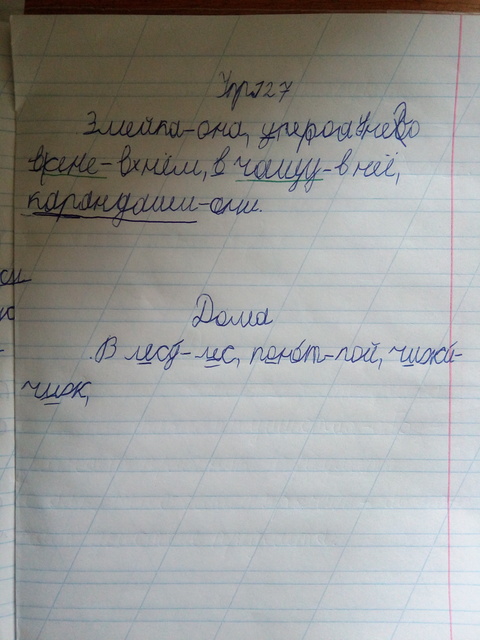 Упр127
Змейка-она, у пера-у него, Во
вхене-в нём, в чащу-в неё,
карандаши-они.
Дома
В лесу́-лес, пою́т-пой, чижи́-
чиж,